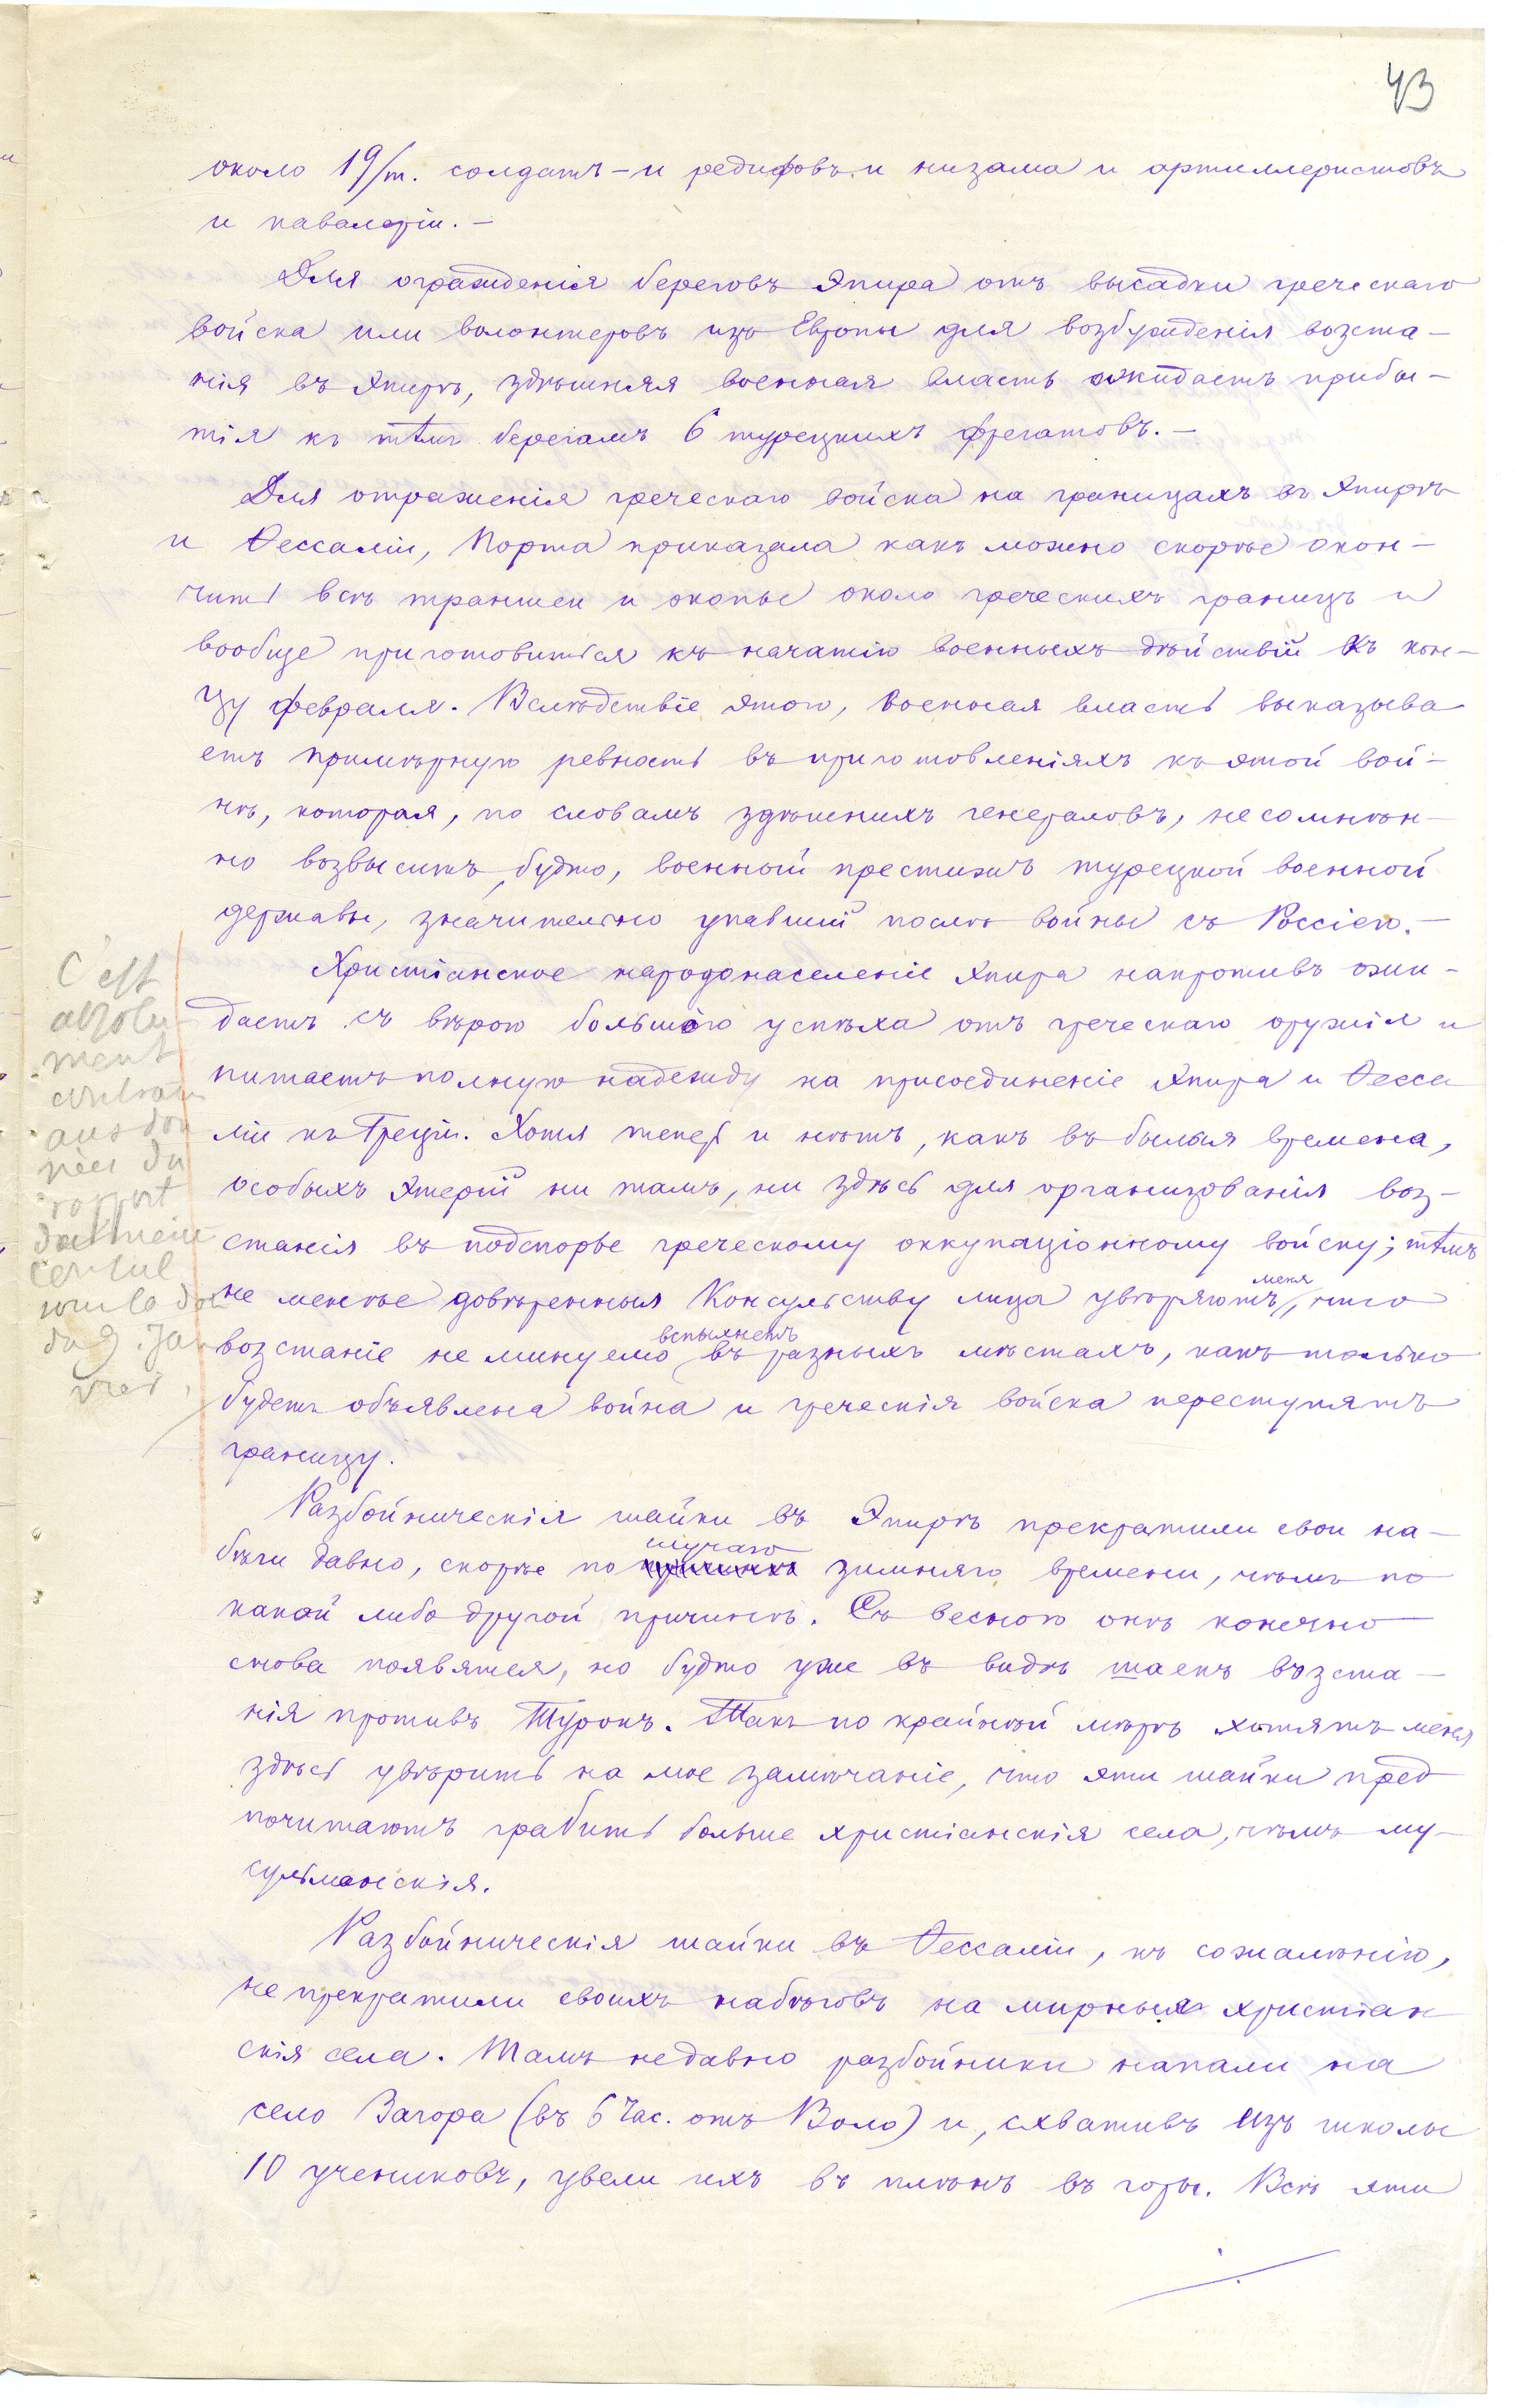 43
около 19/т. солдатъ – и редифовъ и низама и артиллеристовъ
и кавалеріи. –
Для огражденія береговъ Эпира отъ высадки греческаго
войска или волонтеровъ изъ Европы для возбужденія возста-
нія въ Эпирѣ, здѣшняя военная власть ожидаетъ прибы-
тія къ тѣмъ берегамъ 6 турецкихъ фрегатовъ. –
Для отраженія греческаго войска на границахъ въ Эпирѣ
и Ѳессаліи, Порта приказала какъ можно скорѣе окон-
чить всѣ траншеи и окопы около греческихъ границъ и
вообще приготовиться къ начатію военныхъ дѣйствій къ кон-
цу февраля. Вслѣдствіе этого, военная власть выказыва
етъ примѣрную ревность въ приготовленіяхъ къ этой вой-
нѣ, которая, по словамъ здѣшнихъ генераловъ, несомнѣн-
но возвыситъ, будто, военный престижъ турецкой военной
державы, значительно упавшій послѣ войны съ Россіею. –
Христіанское народонаселеніе Эпира напротивъ ожи-
даетъ съ вѣрою большого успѣха отъ греческаго оружія и
питаетъ полную надежду на присоединеніе Эпира и Ѳесса
ліи къ Греціи. Хотя теперь и нѣтъ, какъ въ былыя времена,
особыхъ Этерій ни тамъ, ни здѣсь для организованія воз-
станія въ подспорье греческому оккупаціонному войску; тѣмъ
не менѣе довѣренныя Консульству лица увѣряютъ меня, что
возстаніе неминуемо вспыхнетъ въ разныхъ мѣстахъ, какъ только
будетъ объявлена война и греческія войска переступятъ
границу.
C'est
absolu-
ment
contraire
aux don
nées du
rapport
du même
consul
sous la date
du 9. Jan
vier.
Разбойническія шайки въ Эпирѣ прекратили свои на-
бѣги давно, скорѣе по случаю зимняго времени, чѣмъ по
какой либо другой причинѣ. Съ весною онѣ конечно
снова появятся, но будто уже въ видѣ шаекъ възста-
нія противъ Турокъ. Такъ по крайней мѣрѣ хотятъ меня
здѣсь увѣрить на мое замѣчаніе, что эти шайки пред
почитаютъ грабить больше христіанскія села, чѣмъ му-
сульманскія.
Разбойническія шайки въ Ѳессаліи, къ сожалѣнію,
не прекратили своихъ набѣговъ на мирныя христіан
скія села. Тамъ недавно разбойники напали на
село Загора (въ 6 час. отъ Воло) и, схвативъ изъ школы
10 учениковъ, увели ихъ въ плѣнъ въ горы. Всѣ эти